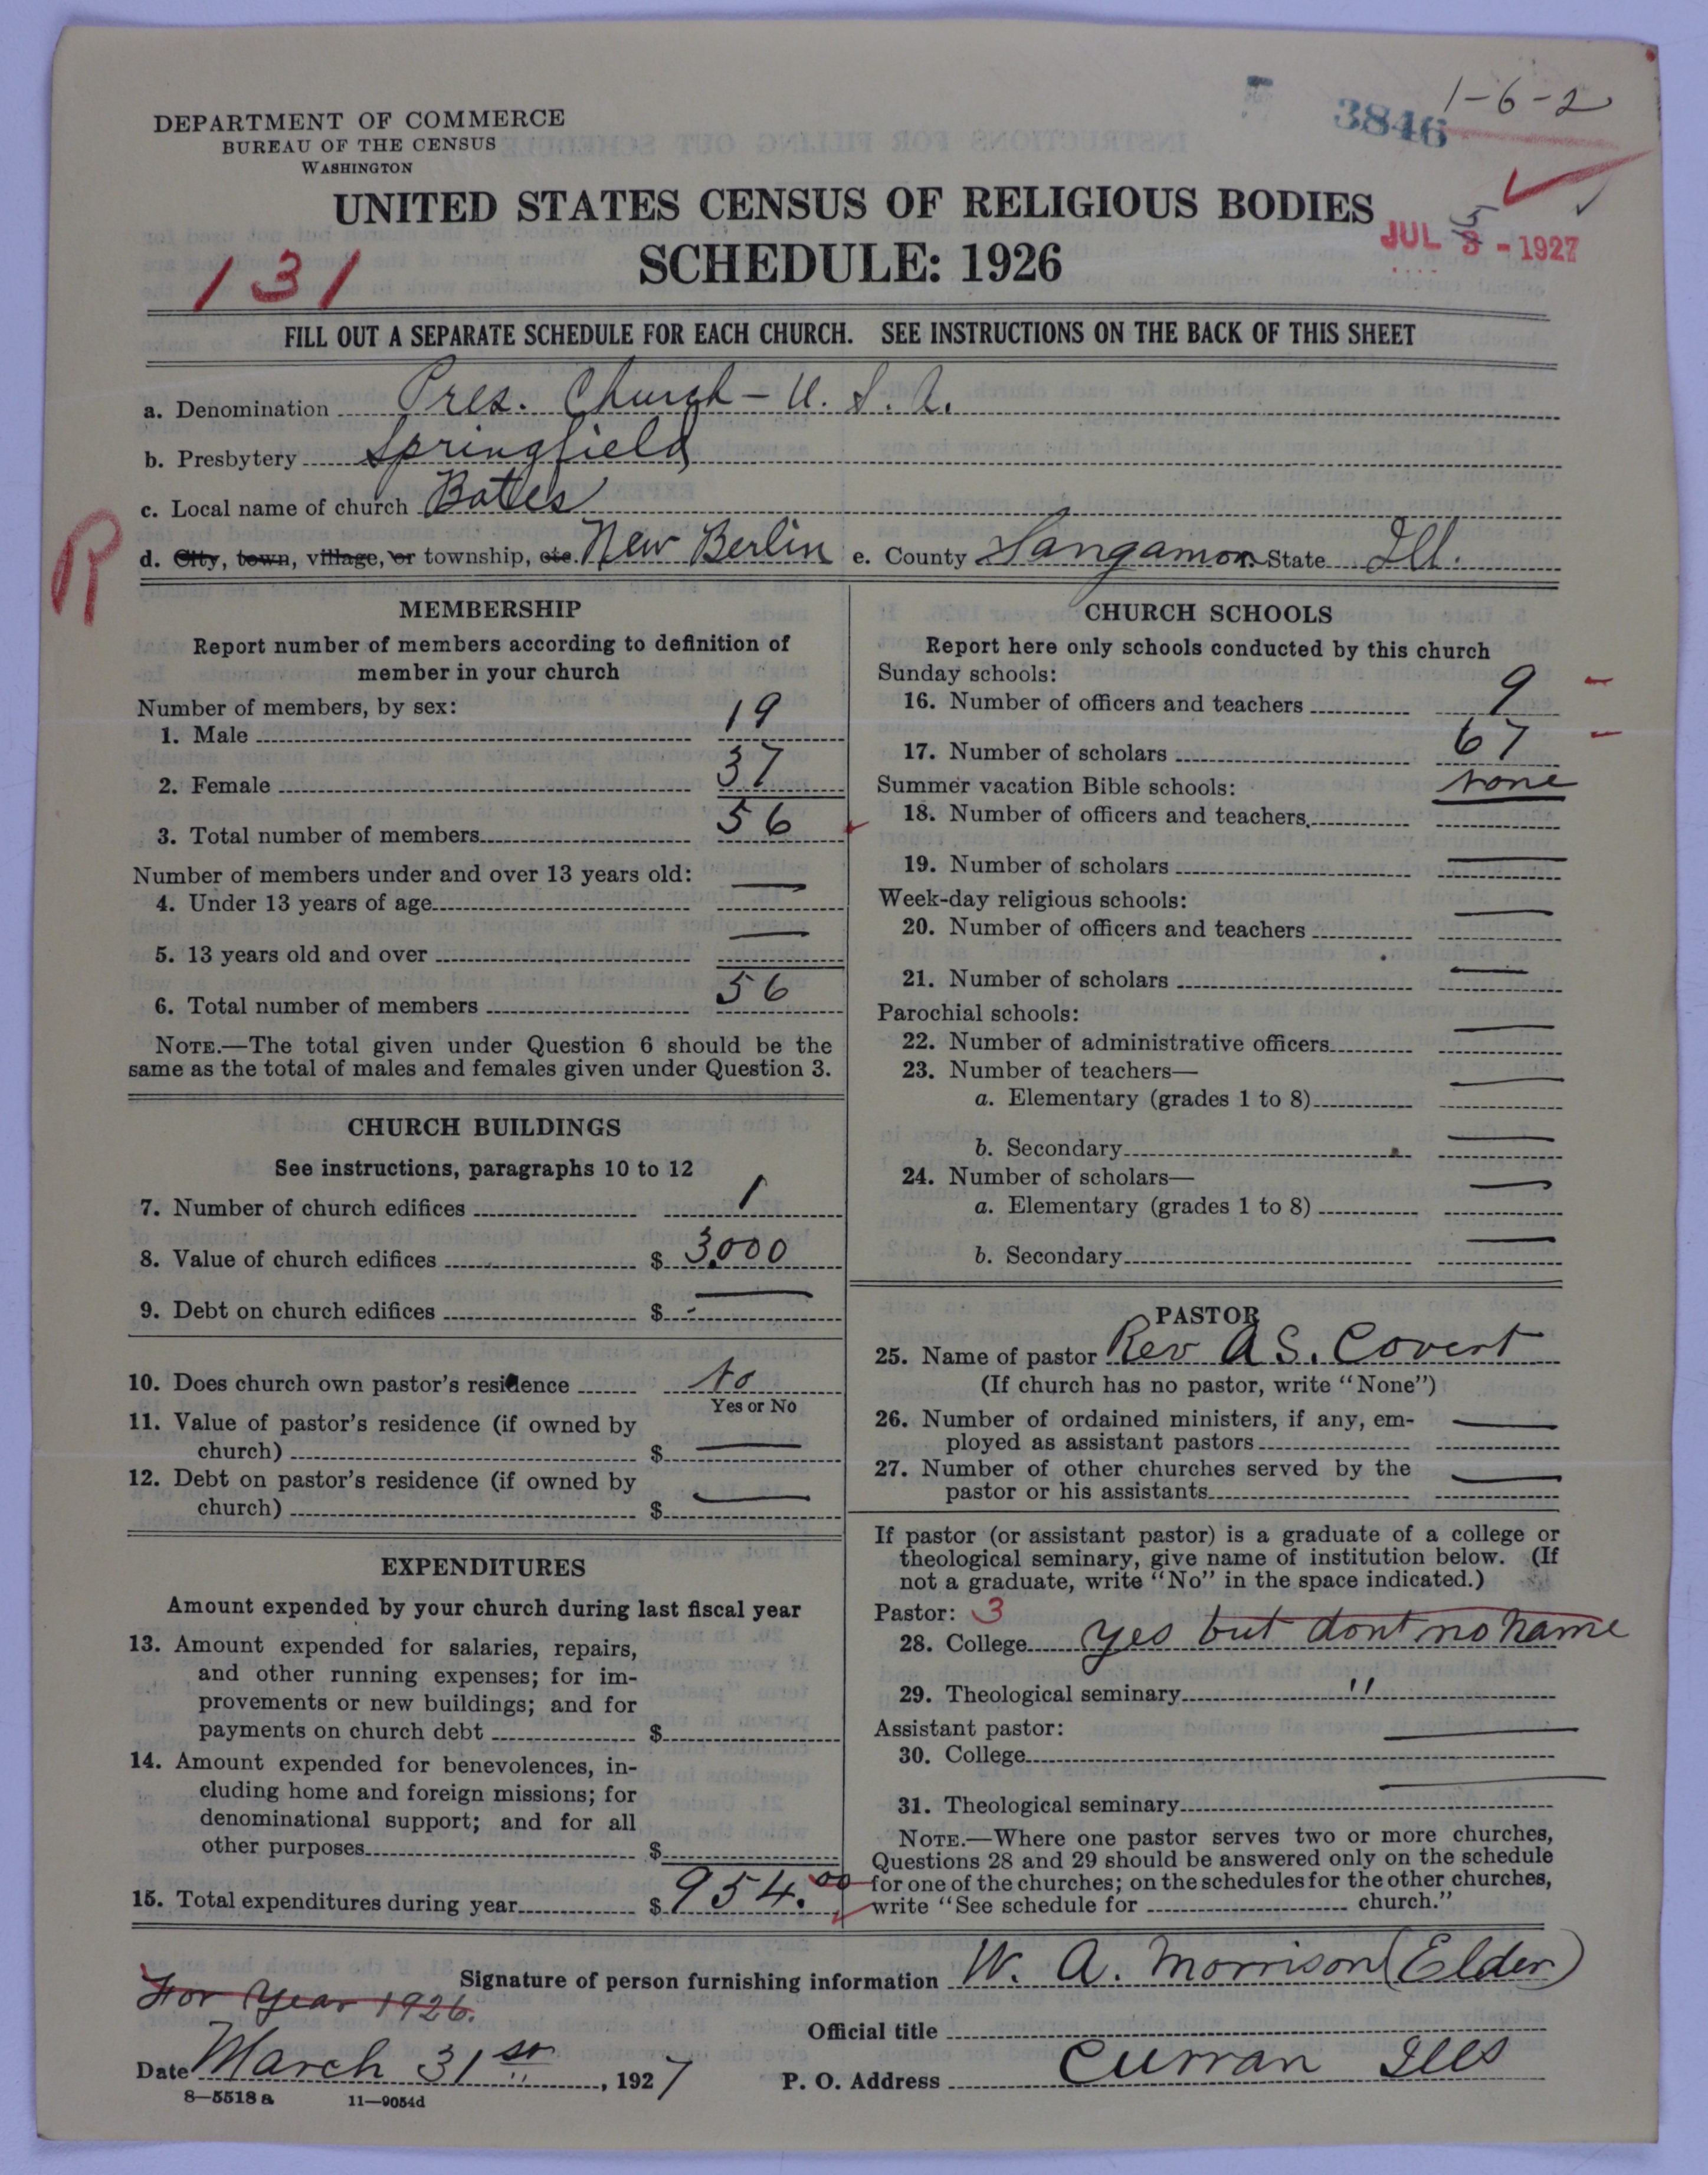 1-6-2
3846
DEPARTMENT OF COMMERCE
BUREAU OF THE CENSUS
WASHINGTON
UNITED STATES CENSUS OF RELIGIOUS BODIES
SCHEDULE: 1926
JUL 5 - 1927
131
FILL OUT A SEPARATE SCHEDULE FOR EACH CHURCH. SEE INSTRUCTIONS ON THE BACK OF THIS SHEET
a. Denomination Pres. Church - U. S. A.
b. Presbytery Springfield
c. Local name of church Bates
R
d. City, town, village, or township, etc. New Berlin e. County Sangamon State Ill.
MEMBERSHIP
Report number of members according to definition of
member in your church
Number of members, by sex:
1. Male 19
2. Female 37
3. Total number of members 56
Number of members under and over 13 years old:
4. Under 13 years of age —
5. 13 years old and over —
6. Total number of members 56
NOTE.—The total given under Question 6 should be the
same as the total of males and females given under Question 3.
CHURCH BUILDINGS
See instructions, paragraphs 10 to 12
7. Number of church edifices 1
8. Value of church edifices $ 3,000
9. Debt on church edifices $ —
10. Does church own pastor's residence No
Yes or No
11. Value of pastor's residence (if owned by
church) $ —
12. Debt on pastor's residence (if owned by
church) $ —
EXPENDITURES
Amount expended by your church during last fiscal year
13. Amount expended for salaries, repairs,
and other running expenses; for im-
provements or new buildings; and for
payments on church debt $
14. Amount expended for benevolences, in-
cluding home and foreign missions; for
denominational support; and for all
other purposes $
15. Total expenditures during year $ 954.00
CHURCH SCHOOLS
Report here only schools conducted by this church
Sunday schools:
16. Number of officers and teachers 9
17. Number of scholars 67
Summer vacation Bible schools: None
18. Number of officers and teachers
19. Number of scholars —
Week-day religious schools:
20. Number of officers and teachers —
21. Number of scholars —
Parochial schools:
22. Number of administrative officers —
23. Number of teachers—
a. Elementary (grades 1 to 8) —
b. Secondary —
24. Number of scholars—
a. Elementary (grades 1 to 8) —
b. Secondary —
PASTOR
25. Name of pastor Rev A S. Covert
(If church has no pastor, write "None")
26. Number of ordained ministers, if any, em-
ployed as assistant pastors —
27. Number of other churches served by the
pastor or his assistants —
If pastor (or assistant pastor) is a graduate of a college or
theological seminary, give name of institution below. (If
not a graduate, write "No" in the space indicated.)
Pastor: 3
28. College yes but dont no name
29. Theological seminary "
Assistant pastor:
30. College —
31. Theological seminary —
NOTE.—Where one pastor serves two or more churches,
Questions 28 and 29 should be answered only on the schedule
for one of the churches; on the schedules for the other churches,
write "See schedule for church."
Signature of person furnishing information W. A. Morrison (Elder)
For Year 1926.
Official title
Date March 31st, 1927
P. O. Address Curran Ills
8—5518 a 11—9054d